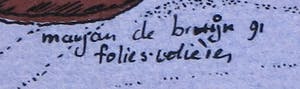 marjan de bruijn 91
folies-volières